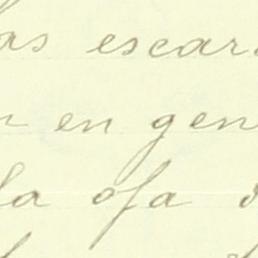 as escar
en gen
la ofa